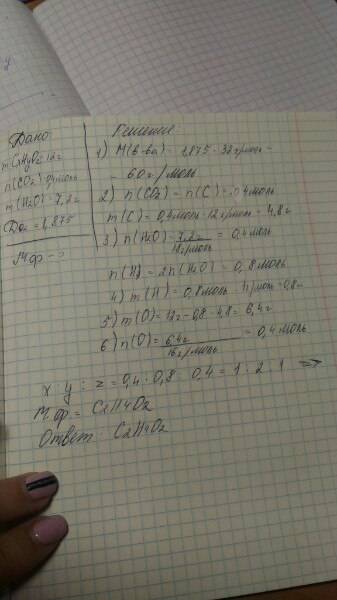 Дано
m CxHyOz 12г
n(CO2) 0,4моль
m(H2O) = 7,2г
DO2 = 1,875
М.ф - ?
Решение
1) M(в-ва) = 1,875 · 32 г/моль =
= 60 г/моль
2) n(CO2) = n(C) = 0,4 моль
m(C) = 0,4моль · 12 г/моль = 4,8г
3) n(H2O) = 7,2г / 18г/моль = 0,4моль
n(H) = 2n(H2O) = 0,8 моль
4) m(H) = 0,8моль · 1г/моль = 0,8г
5) m(O) = 12г - 0,8 - 4,8 = 6,4г
6) n(O) = 6,4г / 16г/моль = 0,4 моль
x : y : z = 0,4 : 0,8 : 0,4 = 1 : 2 : 1 =>
М.ф = C2H4O2
Ответ: C2H4O2